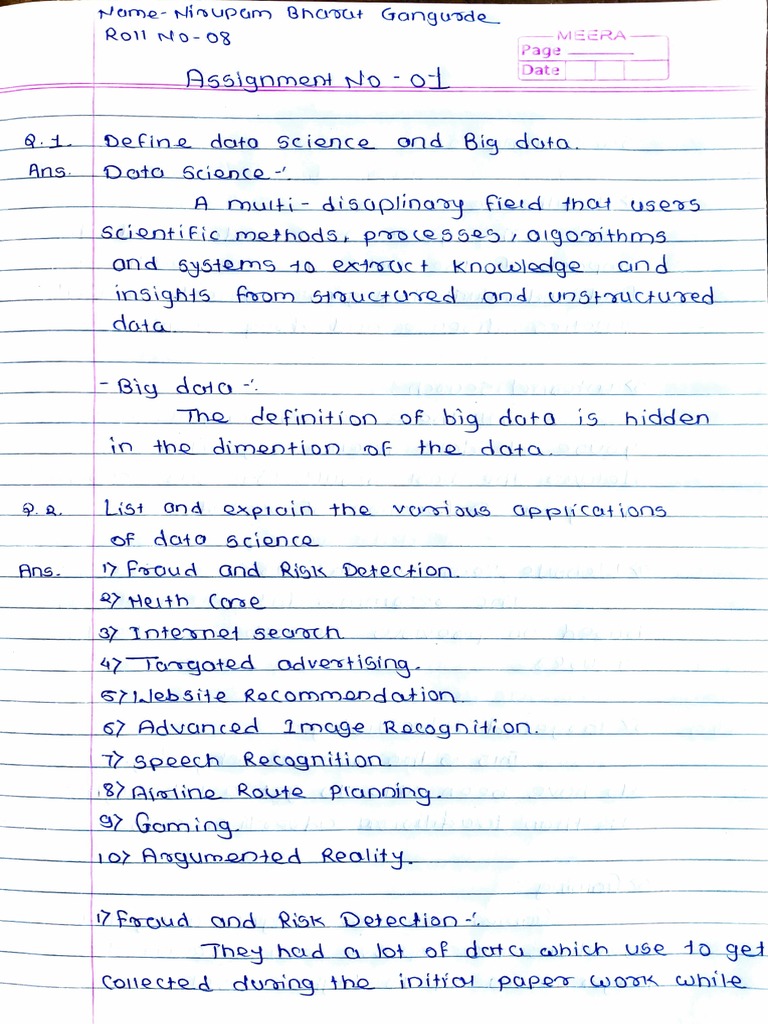 Name- Nirupam Bharat Gangurde
Roll No-08
MEERA
Page
Date
Assignment No - 01
Q.1. Define data science and Big data.
Ans. Data Science -:
A multi-disciplinary field that users
scientific methods, processes, algorithms
and systems to extract knowledge and
insights from structured and unstructured
data.
- Big data -:
The definition of big data is hidden
in the dimention of the data.
Q.2. List and explain the various applications
of data science
Ans. 1) Fraud and Risk Detection.
2) Helth Care
3) Internet search
4) Targated advertising.
5) Website Recommendation.
6) Advanced Image Recognition.
7) Speech Recognition
8) Airline Route Planning.
9) Gaming.
10) Argumented Reality.
1) Fraud and Risk Detection -:
They had a lot of data which use to get
collected during the initial paper work while